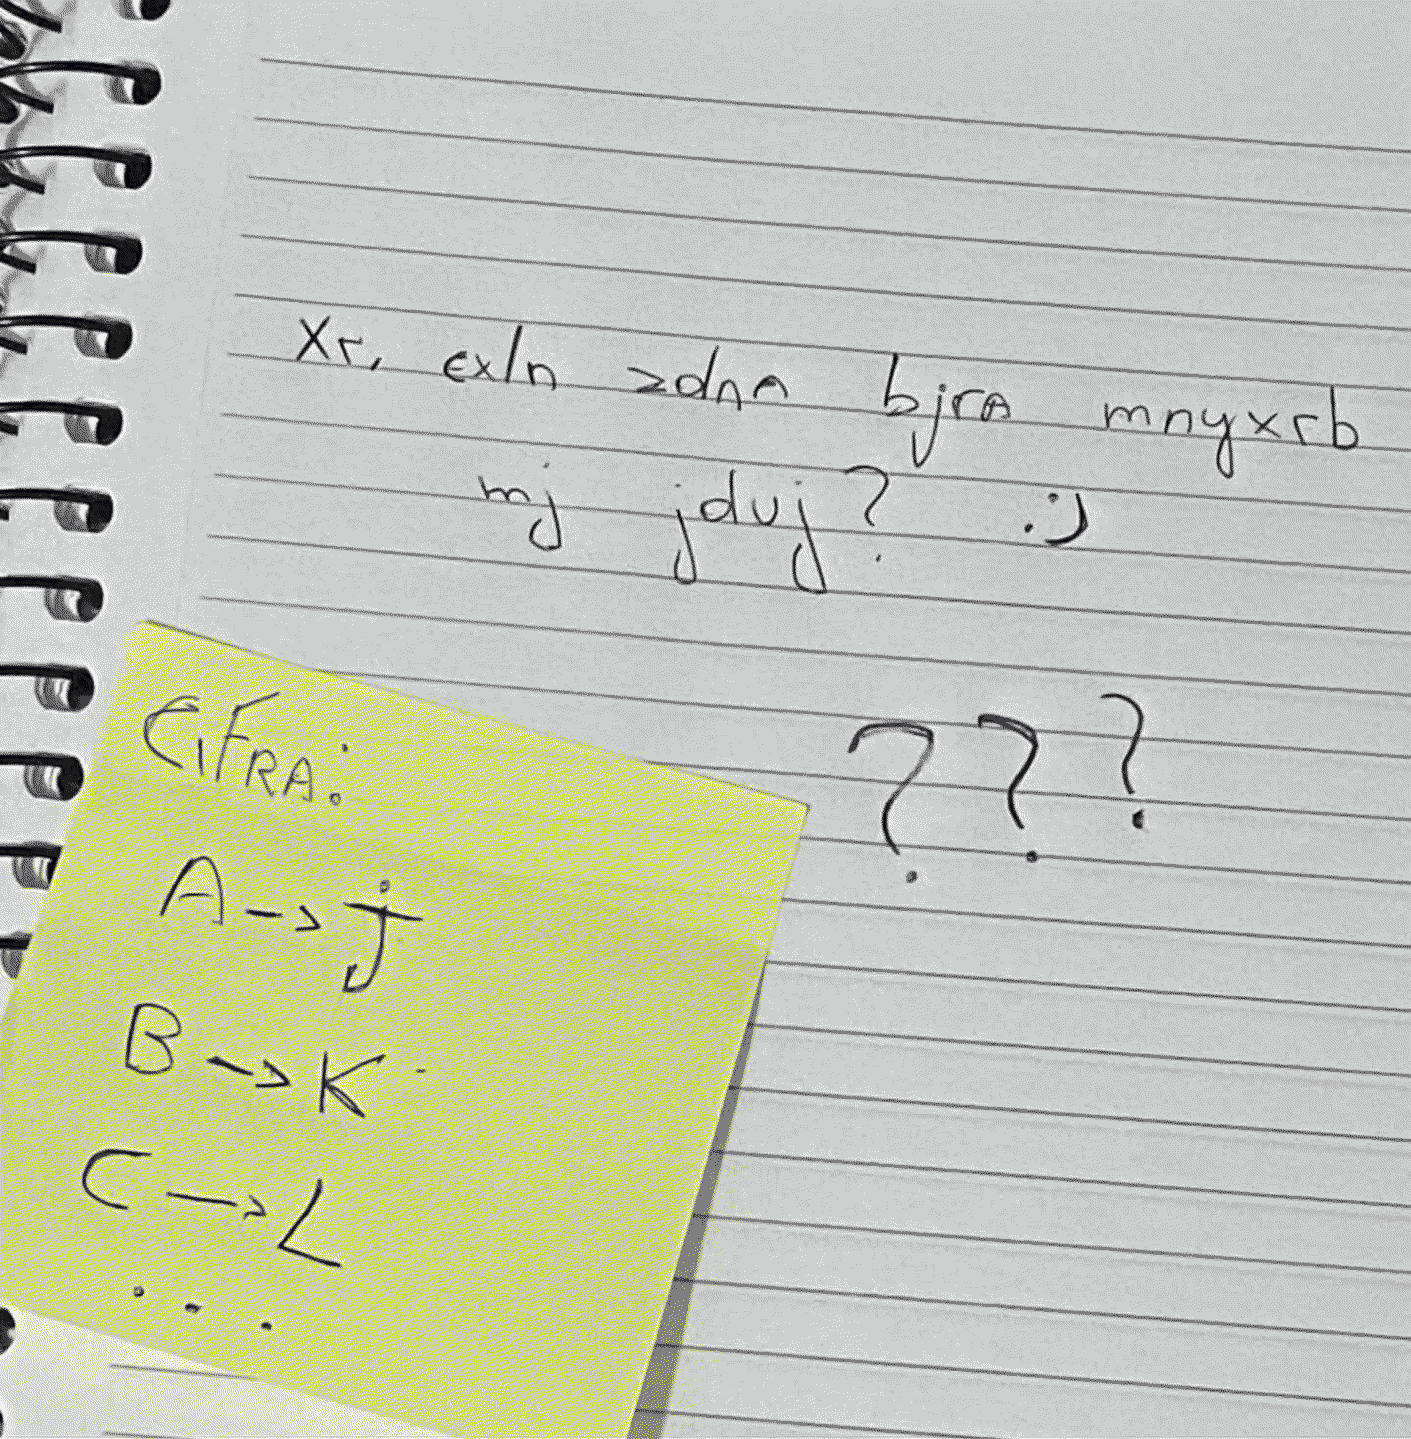 Xr, exln zdnA bjrA mnyxrb
mj jduj? :)
???
CIFRA:
A → j
B → K
C → L
...